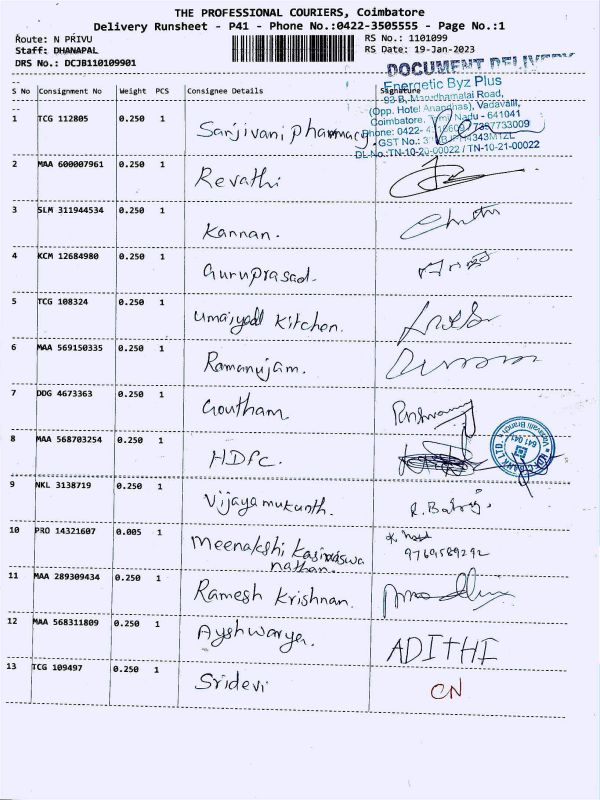 THE PROFESSIONAL COURIERS, Coimbatore
Delivery Runsheet - P41 - Phone No.:0422-3505555 - Page No.:1
Route: N PRIVU RS No.: 1101099
Staff: DHANAPAL RS Date: 19-Jan-2023
DRS No.: DCJB110109901
DOCUMENT DELIVERY
S No Consignment No Weight PCS Consignee Details Signature
Energetic Byz Plus
93 B, Marudhamalai Road,
(Opp. Hotel Anandhas), Vadavalli,
Coimbatore. Tamil Nadu - 641041
Phone: 0422- 7357733009
GST No.:
DL No.:TN-10-20-00022 / TN-10-21-00022
1 TCG 112805 0.250 1 Sanjivani pharmacy
2 MAA 600007961 0.250 1 Revathi
3 SLM 311944534 0.250 1 Kannan.
4 KCM 12684980 0.250 1 Guruprasad.
5 TCG 108324 0.250 1 Kitchen.
6 MAA 569150335 0.250 1 Ramanujam.
7 DDG 4673363 0.250 1 Goutham
8 MAA 568703254 0.250 1 HDFC.
641 041
9 NKL 3138719 0.250 1 Vijayamukunth. R.
10 PRO 14321607 0.005 1 Meenakshi
nathan. 9769589292
11 MAA 289309434 0.250 1 Ramesh Krishnan.
12 MAA 568311809 0.250 1 Ayshwarya. ADITHI
13 TCG 109497 0.250 1 Sridevi CN